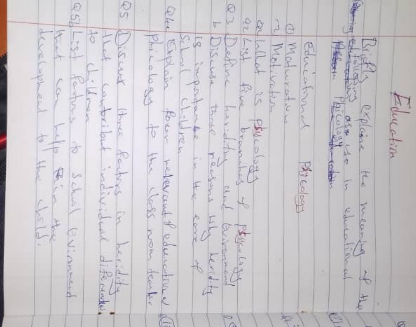 Education
Briefly explain the meaning of the
as use in educational
Psicology
educational Psicology
Maturation
Motivation
what is psicology
List five branches of psicology
Q3 Define heredity and environment
b Discuss three reasons why heredity
is importance in the care of
School children
Q4 Explain four relevant of education
psicology to the class room teacher
Q5 Discuss three factors in heredity
that contribute individual difference
to children
Q5b List factors to school environment
that can help in the
development to the child.